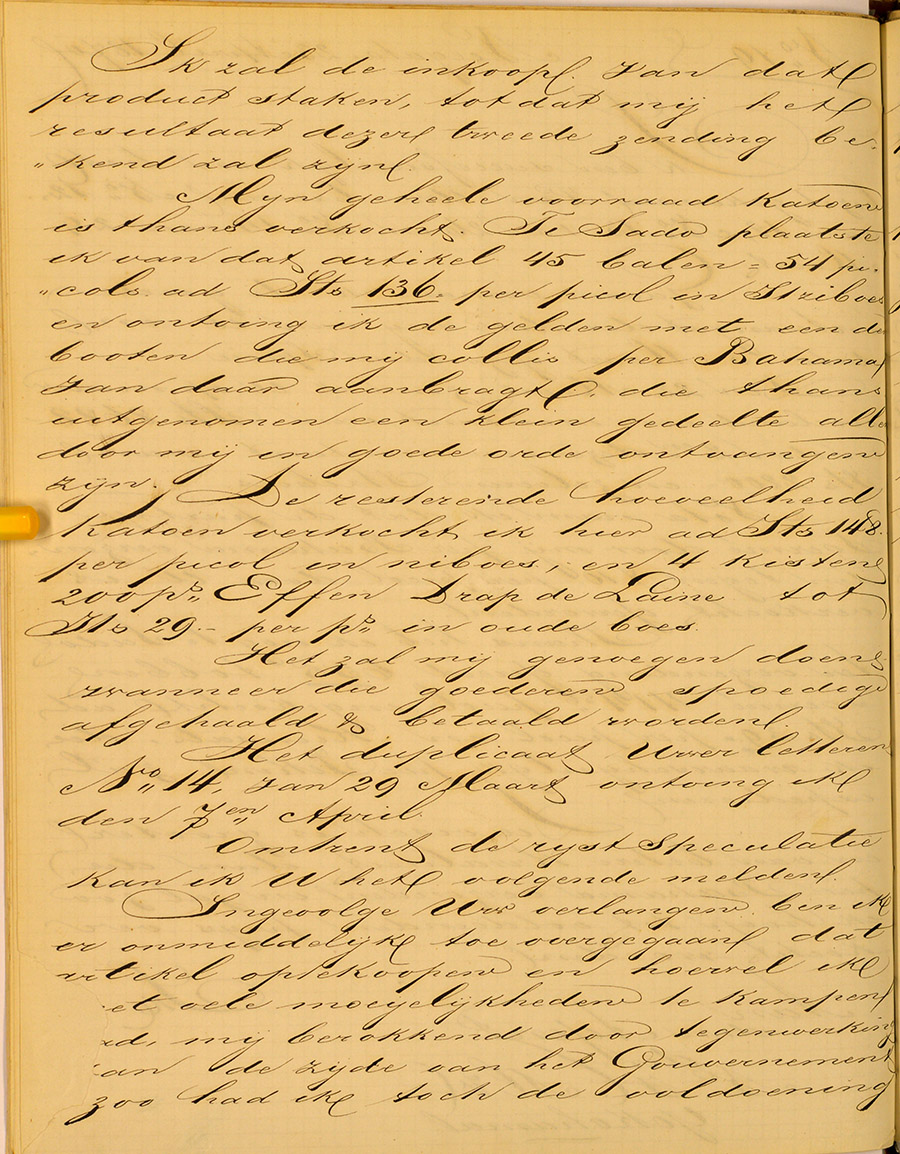 Ik zal de inkoop. van dat
product staken, tot dat mij het
resultaat dezer tweede zending be-
„kend zal zijn.
Myn geheele voorraad Katoen
is thans verkocht. Te Sado plaatste
ik van dat artikel 45 balen = 54 pi-
„cols. ad Its 136. per picol in Itziboes
en ontving ik de gelden met een der
booten die mij collis per Bahama
van daar aanbragt, die thans
uitgenomen een klein gedeelte alle
door mij in goede orde ontvangen
zijn. De resterende hoeveelheid
Katoen verkocht ik hier ad Its 148.
per picol in niboes, en 4 kisten
200 ps„ Effen Drap de Laine tot
Its 29.- per ps„ in oude boes.
Het zal mij genoegen doen
wanneer die goederen spoedig
afgehaald & betaald worden.
Het duplicaat Uwer letteren
No„ 14, van 29 Maart ontving ik
den 7en„ April.
Omtrent de ryst Speculatie
kan ik U het volgende melden.
Ingevolge Uw verlangen ben ik
er onmiddelijk toe overgegaan dat
artikel optekoopen en hoewel ik
et vele moeyelijkheden te kampen
ad, mij berokkend door tegenwerking
van de zijde van het Gouvernement
zoo had ik toch de voldoening